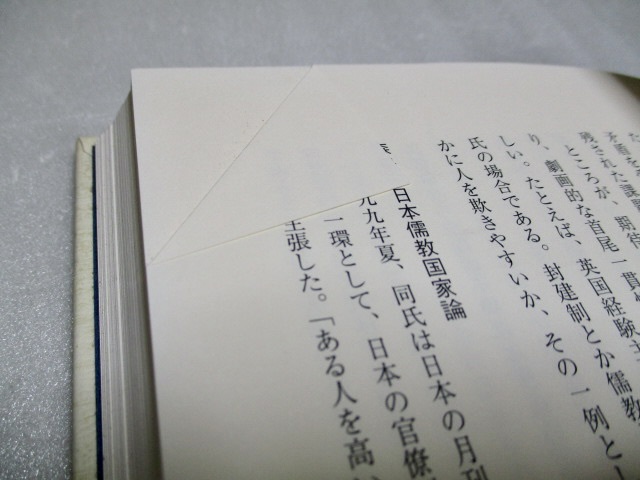 残された
ところが、期待
り、劇画的な首尾一貫
しい。たとえば、英国経験主
氏の場合である。封建制とか儒教
かに人を欺きやすいか、その一例とし
日本儒教国家論
九九年夏、同氏は日本の月刊
一環として、日本の官僚
主張した。「ある人を高